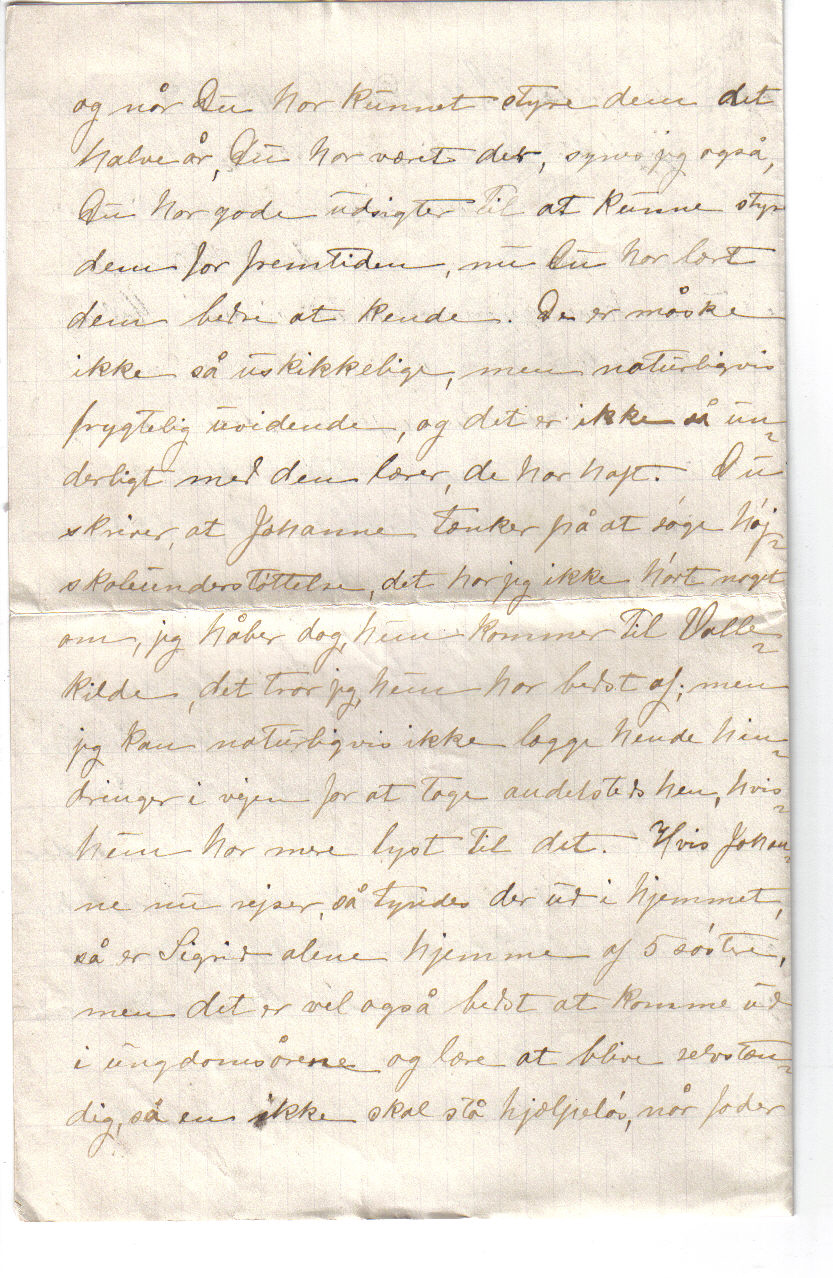 og når Du har kunnet styre dem det
halve år, Du har været der, synes jeg også,
Du har gode udsigter til at kunne styre
dem for fremtiden, nu Du har lært
dem bedre at kende. De er måske
ikke så uskikkelige, men naturligvis
frygtelig uvidende, og det er ikke så un-
derligt med den lærer, de har haft. Du
skriver, at Johanne tænker på at søge høj-
skoleunderstøttelse, det har jeg ikke hørt noget
om, jeg håber dog, hun kommer til Valle-
kilde, det tror jeg, hun har bedst af; men
jeg kan naturligvis ikke lægge hende hin-
dringer i vejen for at tage andetsteds hen, hvis
hun har mere lyst til det. Hvis Johan-
ne nu rejser, så tyndes der ud i hjemmet,
så er Sigrid alene hjemme af 5 søstre,
men det er vel også bedst at komme ud
i ungdomsårene og lære at blive selvstæn-
dig, så en ikke skal stå hjælpeløs, når fader